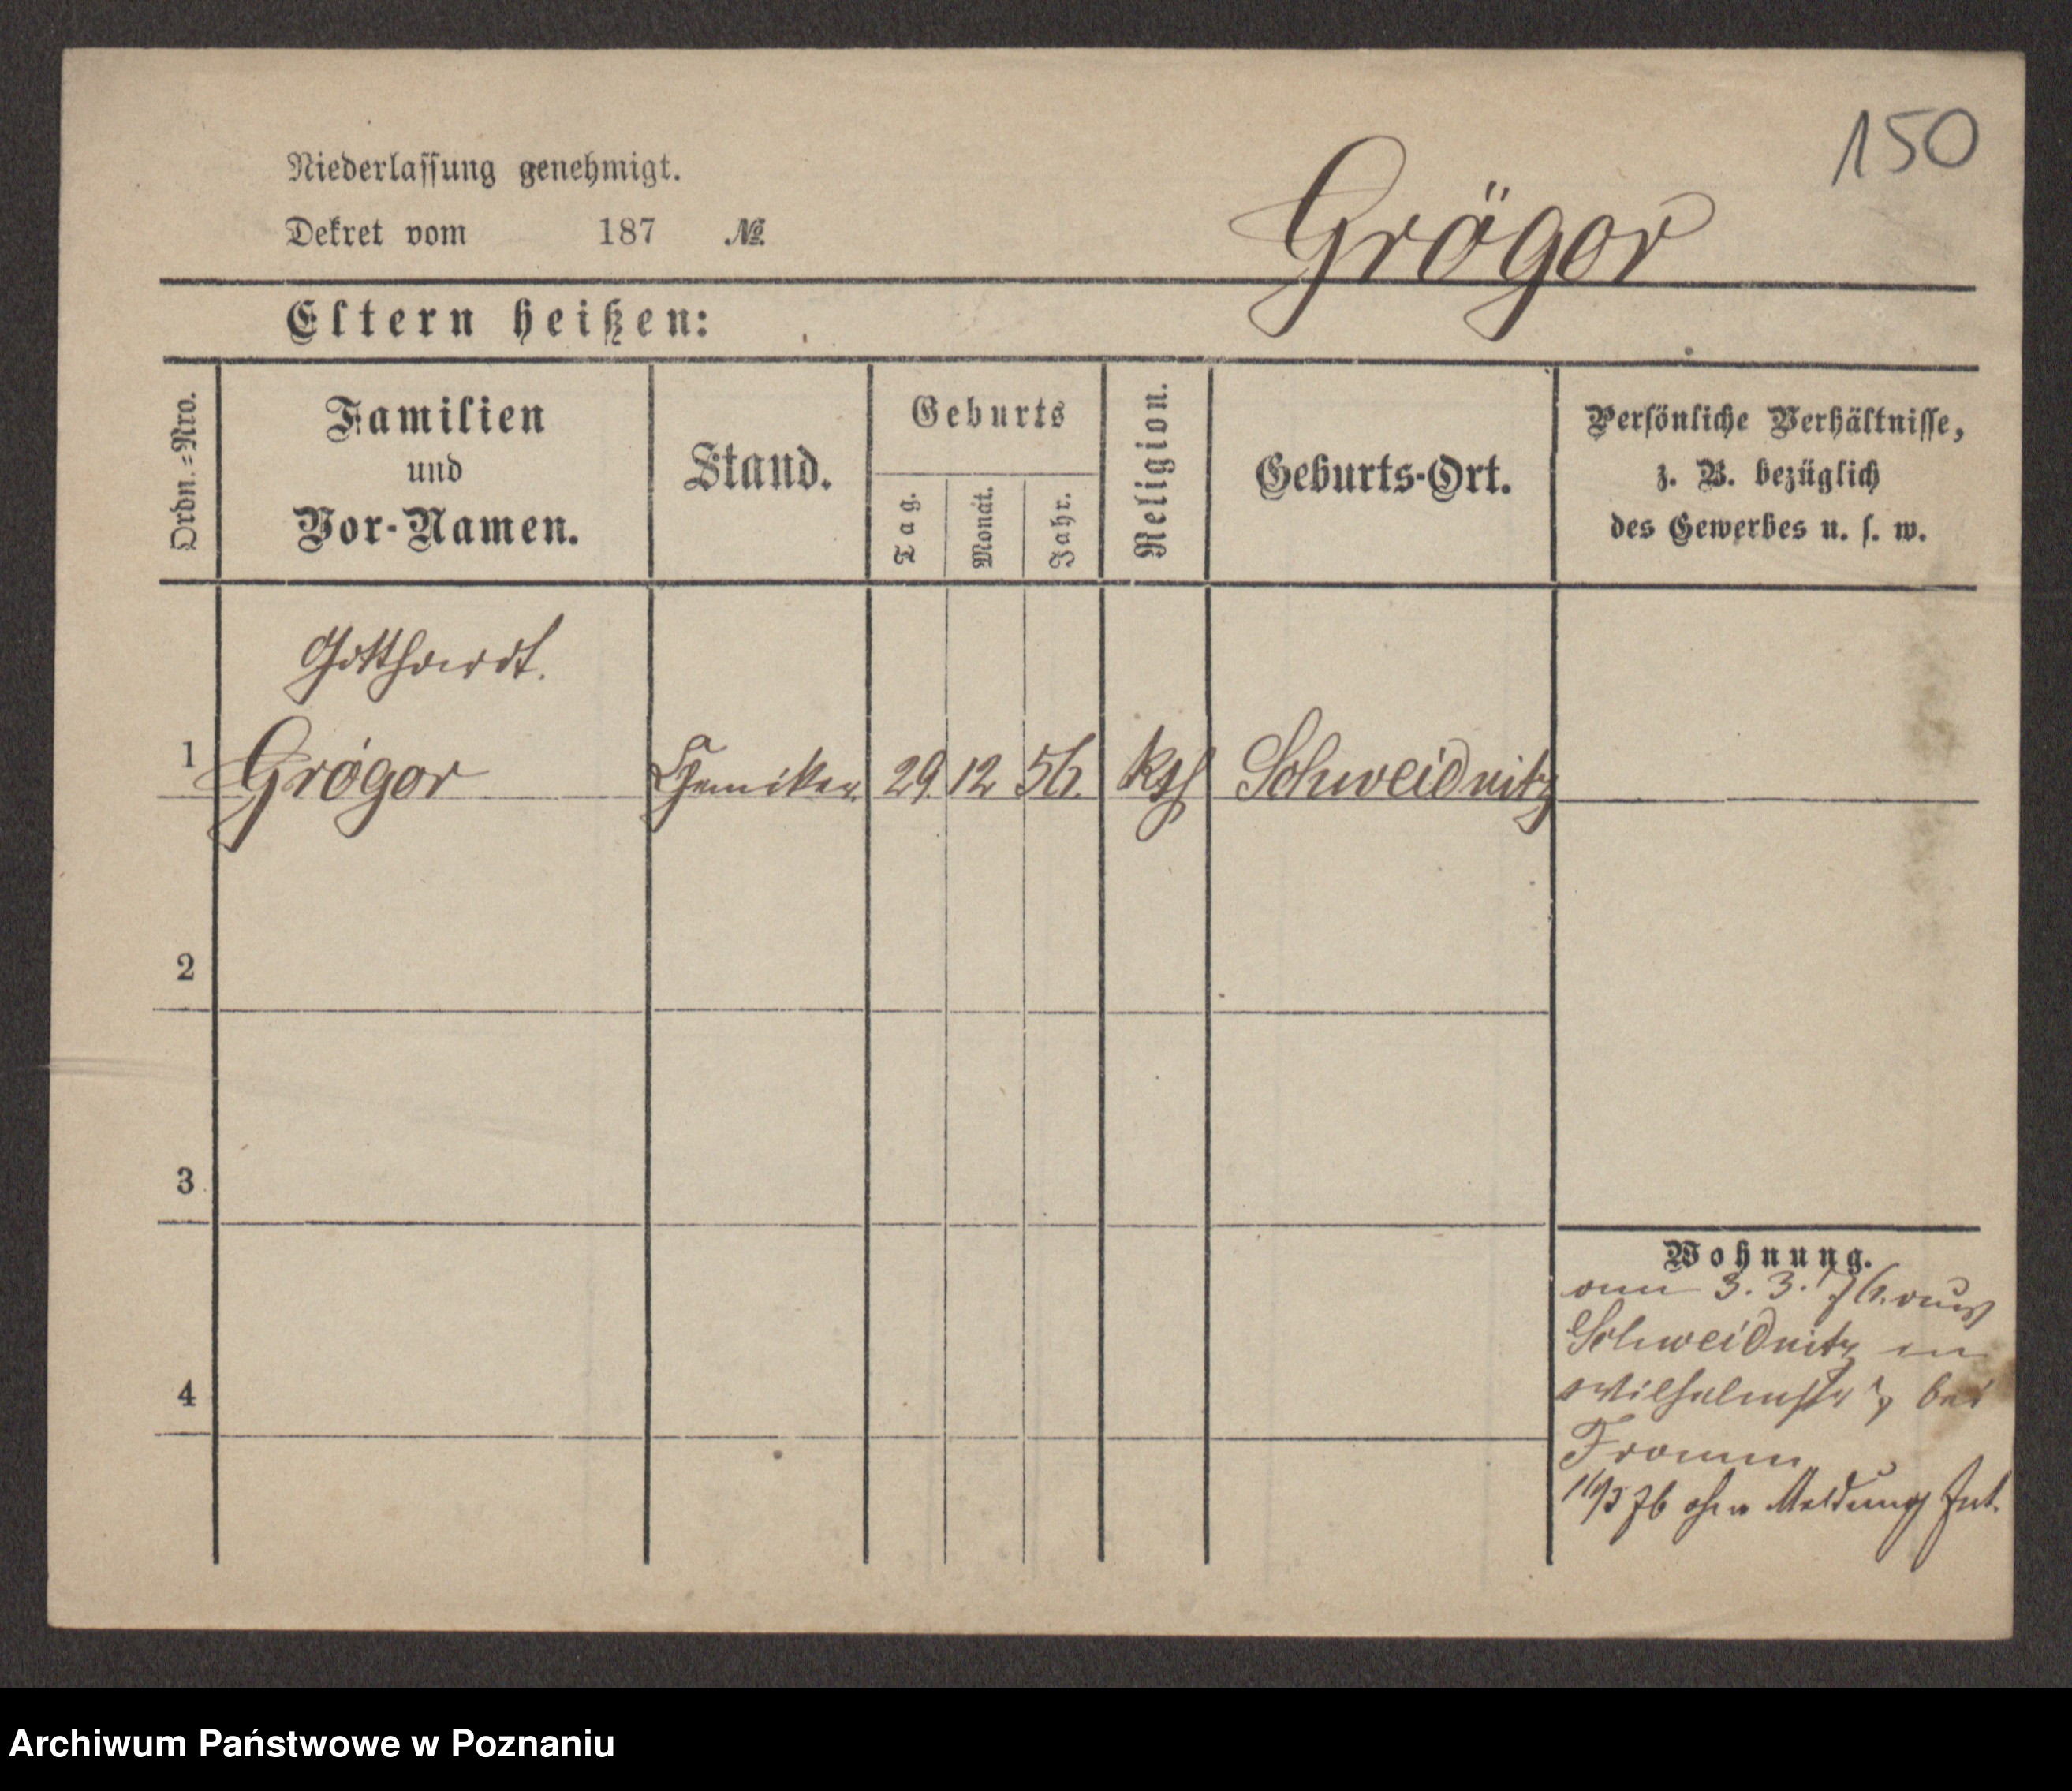 150
Niederlassung genehmigt.
Dekret vom 187 №
Grögor
Eltern heißen:
Ordn.=Nro.
Familien
und
Vor-Namen.
Stand.
Geburts
Tag.
Monat.
Jahr.
Religion.
Geburts-Ort.
Persönliche Verhältnisse,
z. B. bezüglich
des Gewerbes u. s. w.
Gotthardt.
1 Grögor Chemiker 29. 12 56. kth Schweidnitz
2
3
4
Wohnung.
am 3. 3. 76. aus
Schweidnitz in
Wilhelmstr bei
Fromm
76 ohne Meldung
Archiwum Państwowe w Poznaniu